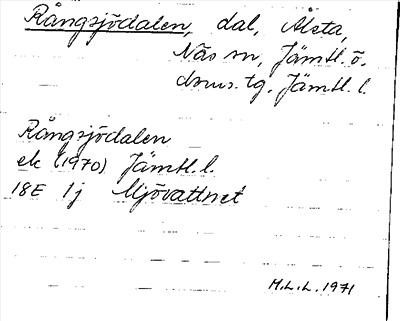 Rångsjödalen, dal, Älsta,
Näs sn, Jämtl. ö.
doms. tg. Jämtl. l.
Rångsjödalen
ek (1970) Jämtl. l.
18E 1j Mjövattnet
M.L.L. 1971